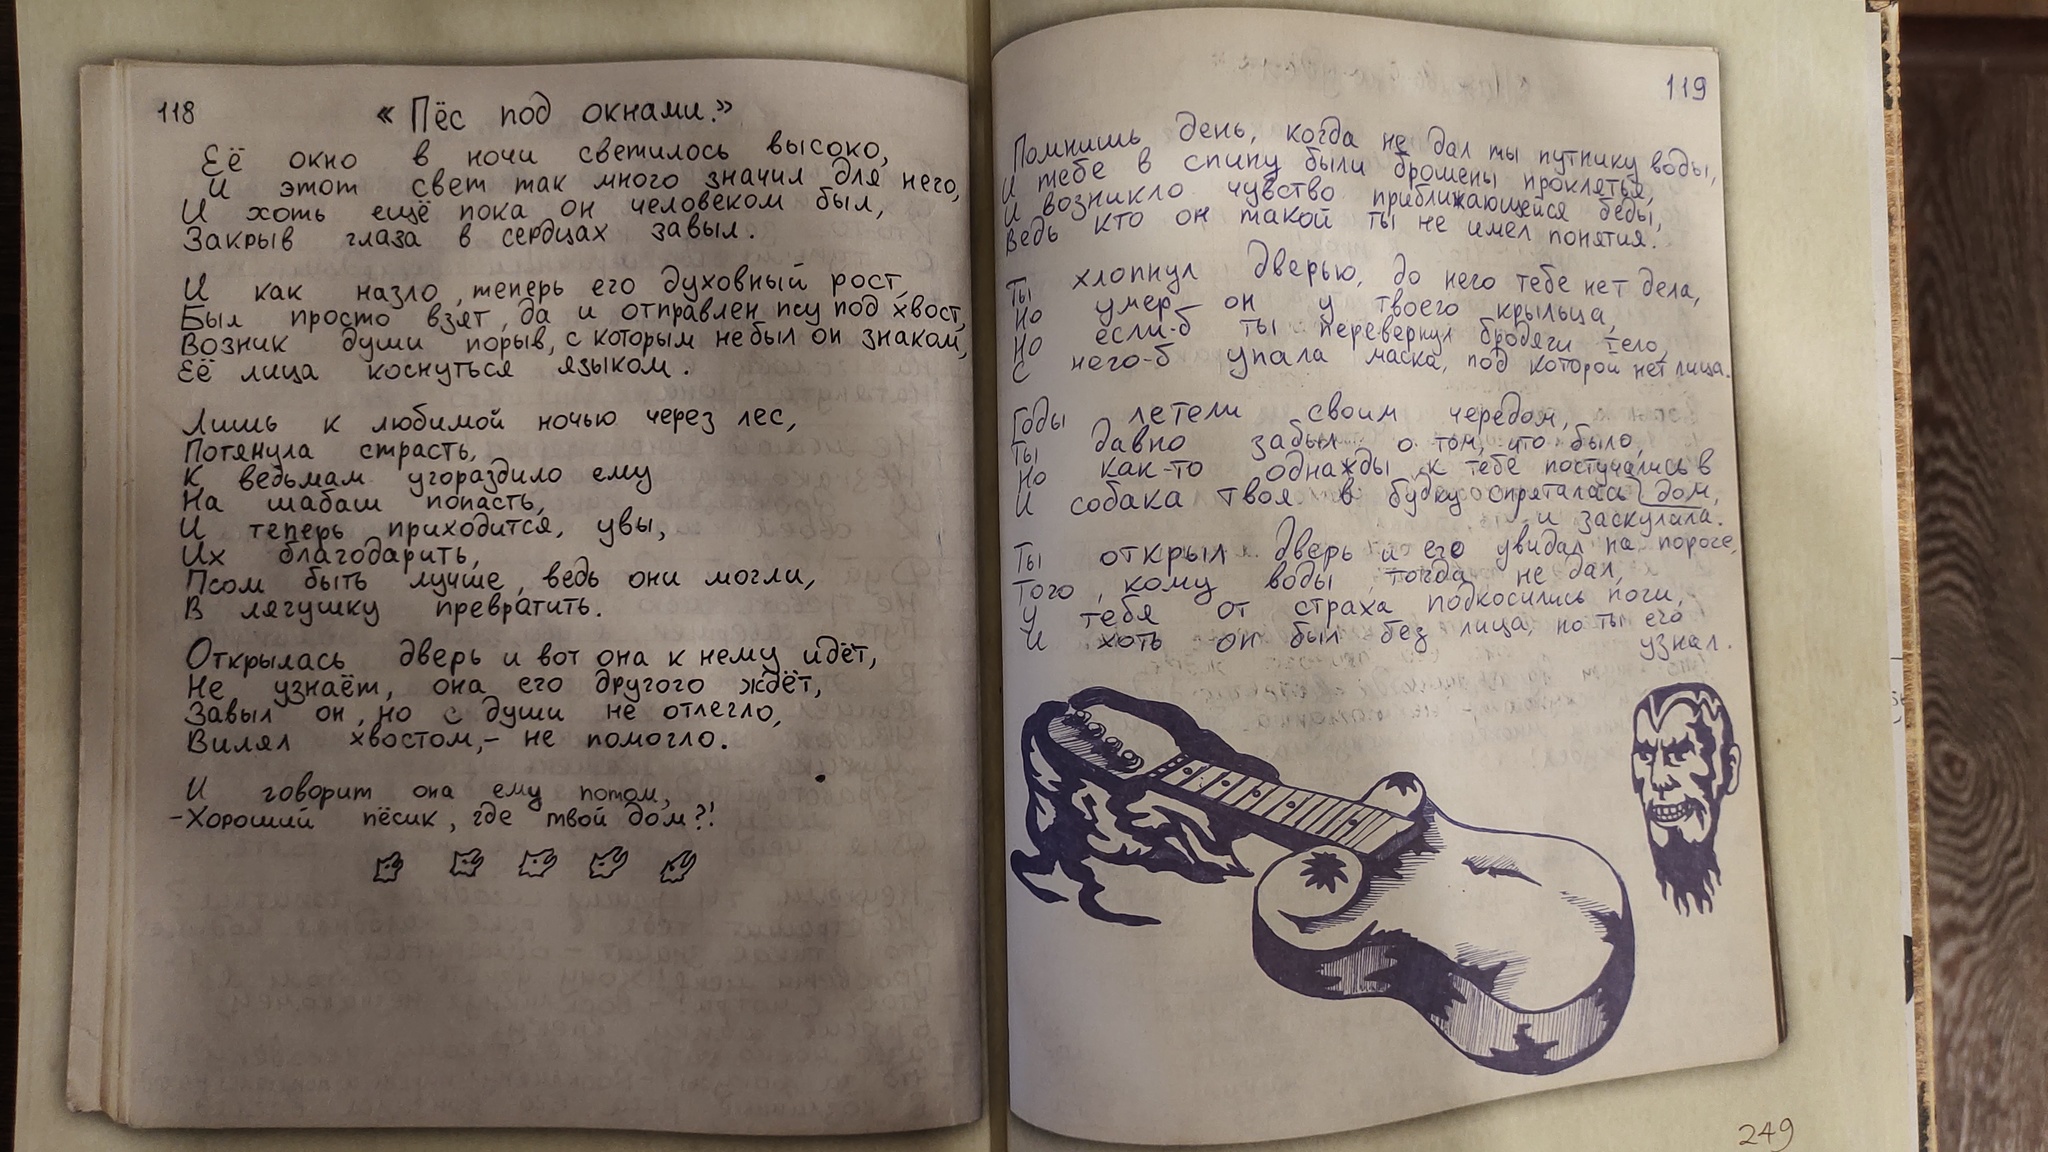 118
« Пёс под окнами.»
Её окно в ночи светилось высоко,
И этот свет так много значил для него,
И хоть ещё пока он человеком был,
Закрыв глаза в сердцах завыл.
И как назло, теперь его духовный рост,
Был просто взят, да и отправлен псу под хвост,
Возник души порыв, с которым не был он знаком,
Её лица коснуться языком.
Лишь к любимой ночью через лес,
Потянула страсть,
К ведьмам угораздило ему
На шабаш попасть,
И теперь приходится, увы,
Их благодарить,
Псом быть лучше, ведь они могли,
В лягушку превратить.
Открылась дверь и вот она к нему идёт,
Не узнаёт, она его другого ждёт,
Завыл он, но с души не отлегло,
Вилял хвостом,- не помогло.
И говорит она ему потом,
-Хороший пёсик, где твой дом?!
119
Помнишь день, когда не дал ты путнику воды,
И тебе в спину были брошены проклятья,
И возникло чувство приближающейся беды,
Ведь кто он такой ты не имел понятия.
Ты хлопнул дверью, до него тебе нет дела,
Но умер он у твоего крыльца,
Но если-б ты перевернул бродяги тело,
С него-б упала маска, под которой нет лица.
Годы летели своим чередом,
Ты давно забыл о том, что было,
Но как-то однажды к тебе постучались в
И собака твоя в будку спряталась дом,
и заскулила.
Ты открыл дверь и его увидал на пороге,
Того, кому воды тогда не дал,
У тебя от страха подкосились ноги,
И хоть он был без лица, но ты его
узнал.
249